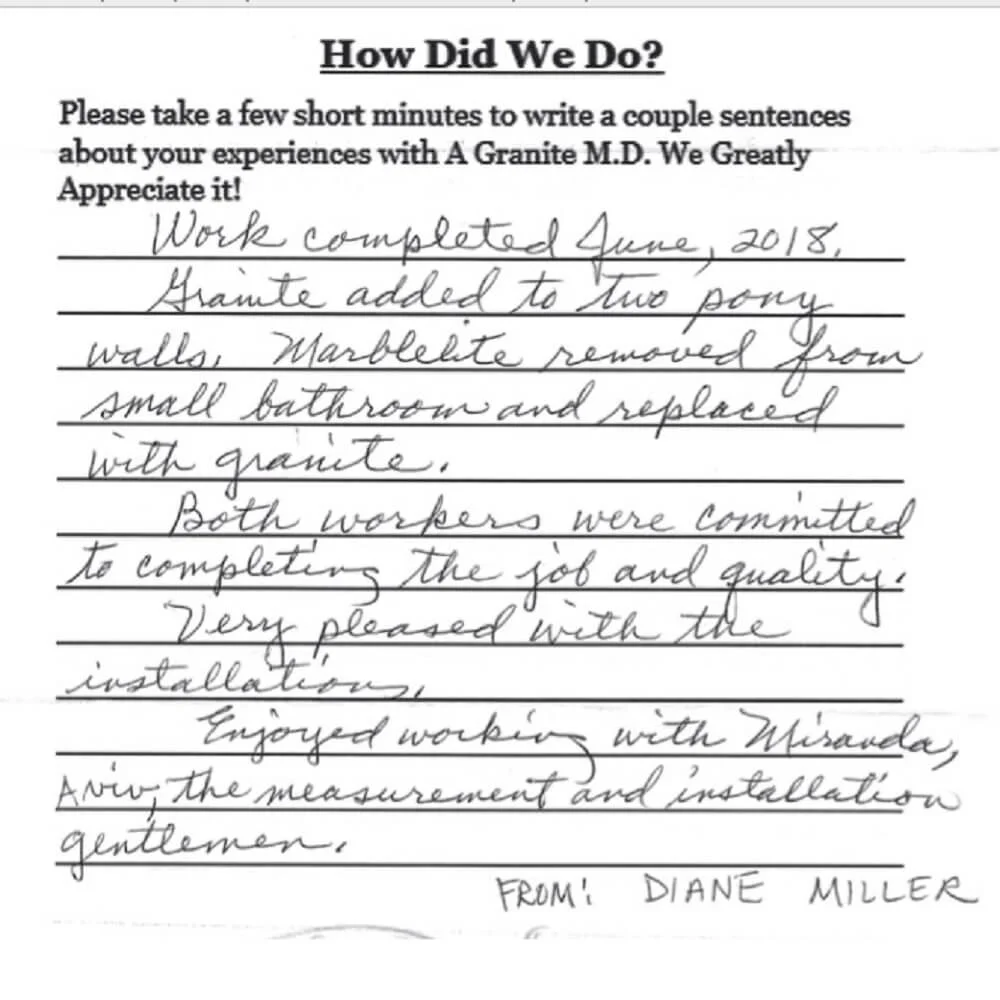 How Did We Do?
Please take a few short minutes to write a couple sentences
about your experiences with A Granite M.D. We Greatly
Appreciate it!
Work completed June, 2018.
Granite added to two pony
walls. Marblelite removed from
small bathroom and replaced
with granite.
Both workers were committed
to completing the job and quality.
Very pleased with the
installations.
Enjoyed working with Miranda,
Aviv, the measurement and installation
gentlemen.
FROM: DIANE MILLER